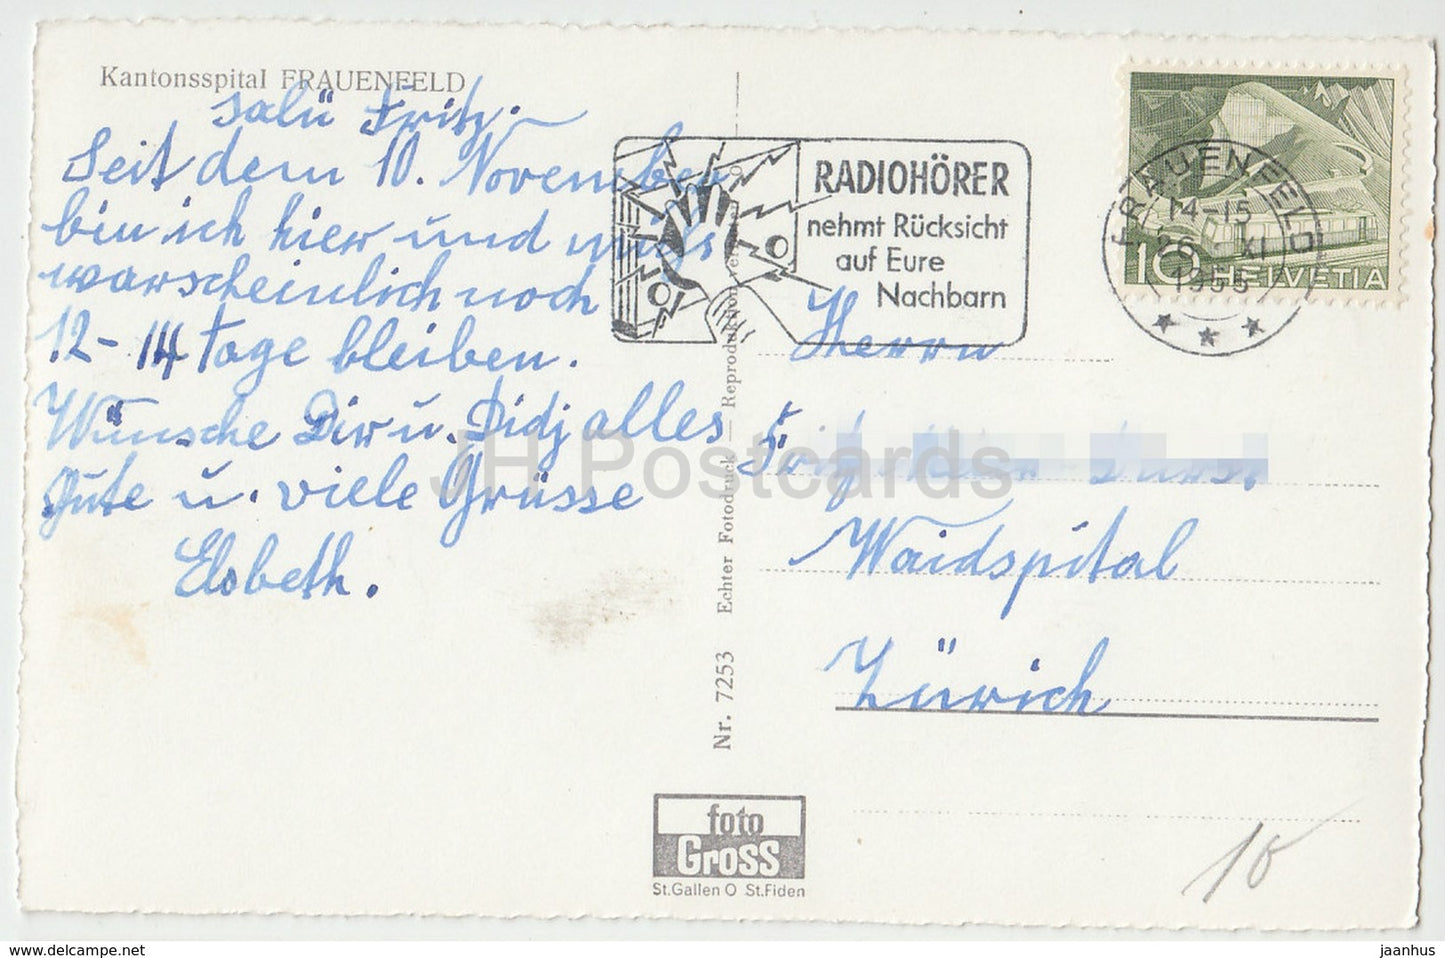 Kantonsspital FRAUENFELD
Salü Fritz.
Seit dem 10. November
bin ich hier und mus
warscheinlich noch
12-14 Tage bleiben.
Wünsche Dir u. Didj alles
Gute u. viele Grüsse
Elsbeth.
RADIOHÖRER
nehmt Rücksicht
auf Eure
Nachbarn
FRAUENFELD
14-15
26. XI
1955
10 HELVETIA
Herrn
Fritz
Waidspital
Zürich
Nr. 7253 Echter Fotodruck — Reproduktion
foto
Gross
St.Gallen O St.Fiden
10
JH Postcards
www.delcampe.net
jaanhus